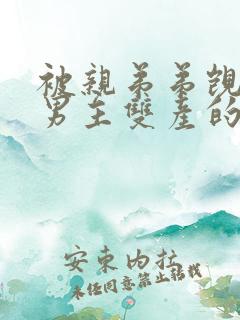 被親弟弟覬
男主雙產的
安東內拉
未任同意禁止轉載